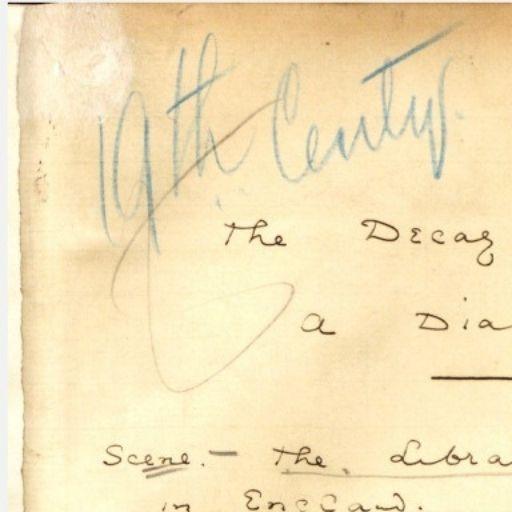 19th Centy.
The Decay
a Dia
Scene. — The Libra
in England.